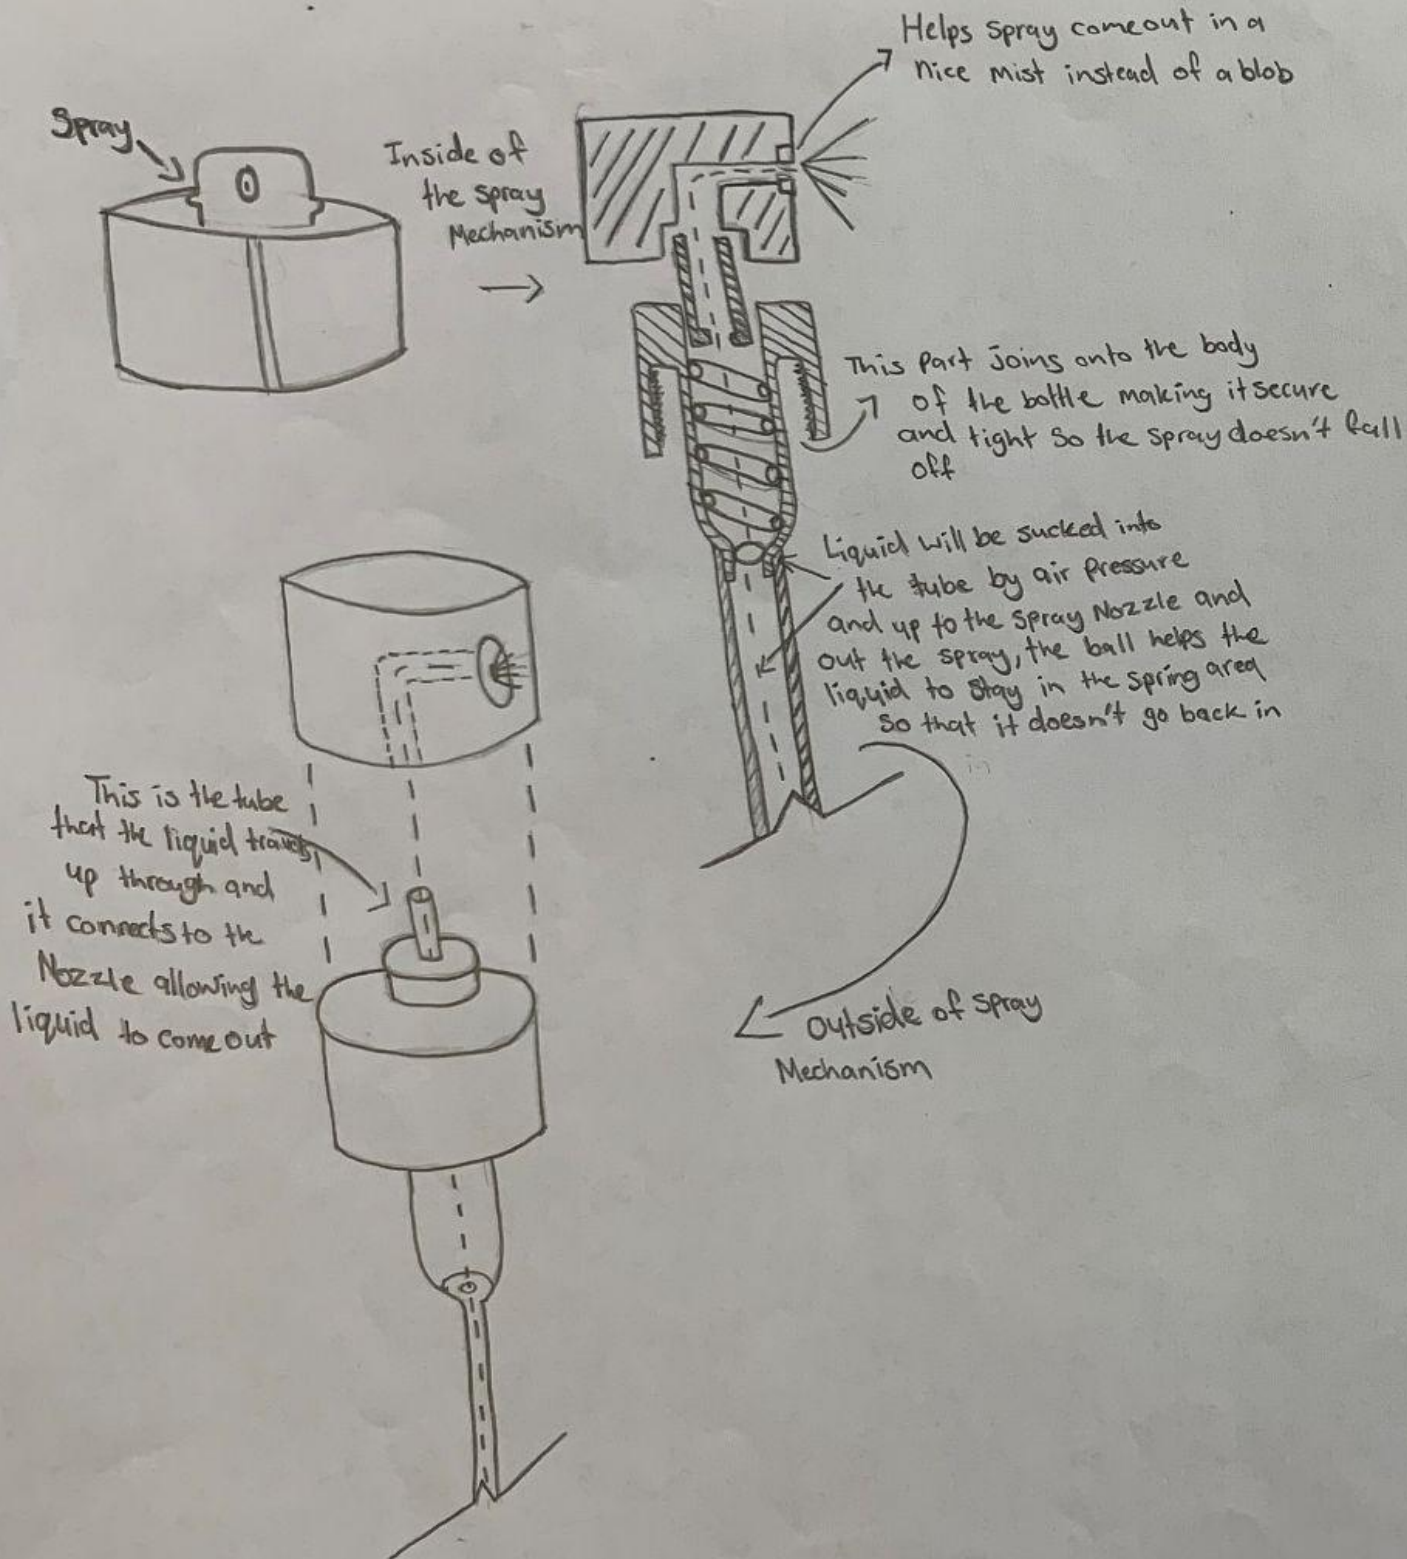 Helps Spray come out in a
nice mist instead of a blob
Spray
Inside of
the spray
Mechanism
This part joins onto the body
of the bottle making it secure
and tight so the spray doesn't fall
off
Liquid will be sucked into
the tube by air pressure
and up to the spray Nozzle and
out the spray, the ball helps the
liquid to stay in the spring area
so that it doesn't go back in
in
This is the tube
that the liquid travels
up through and
it connects to the
Nozzle allowing the
liquid to come out
Outside of spray
Mechanism